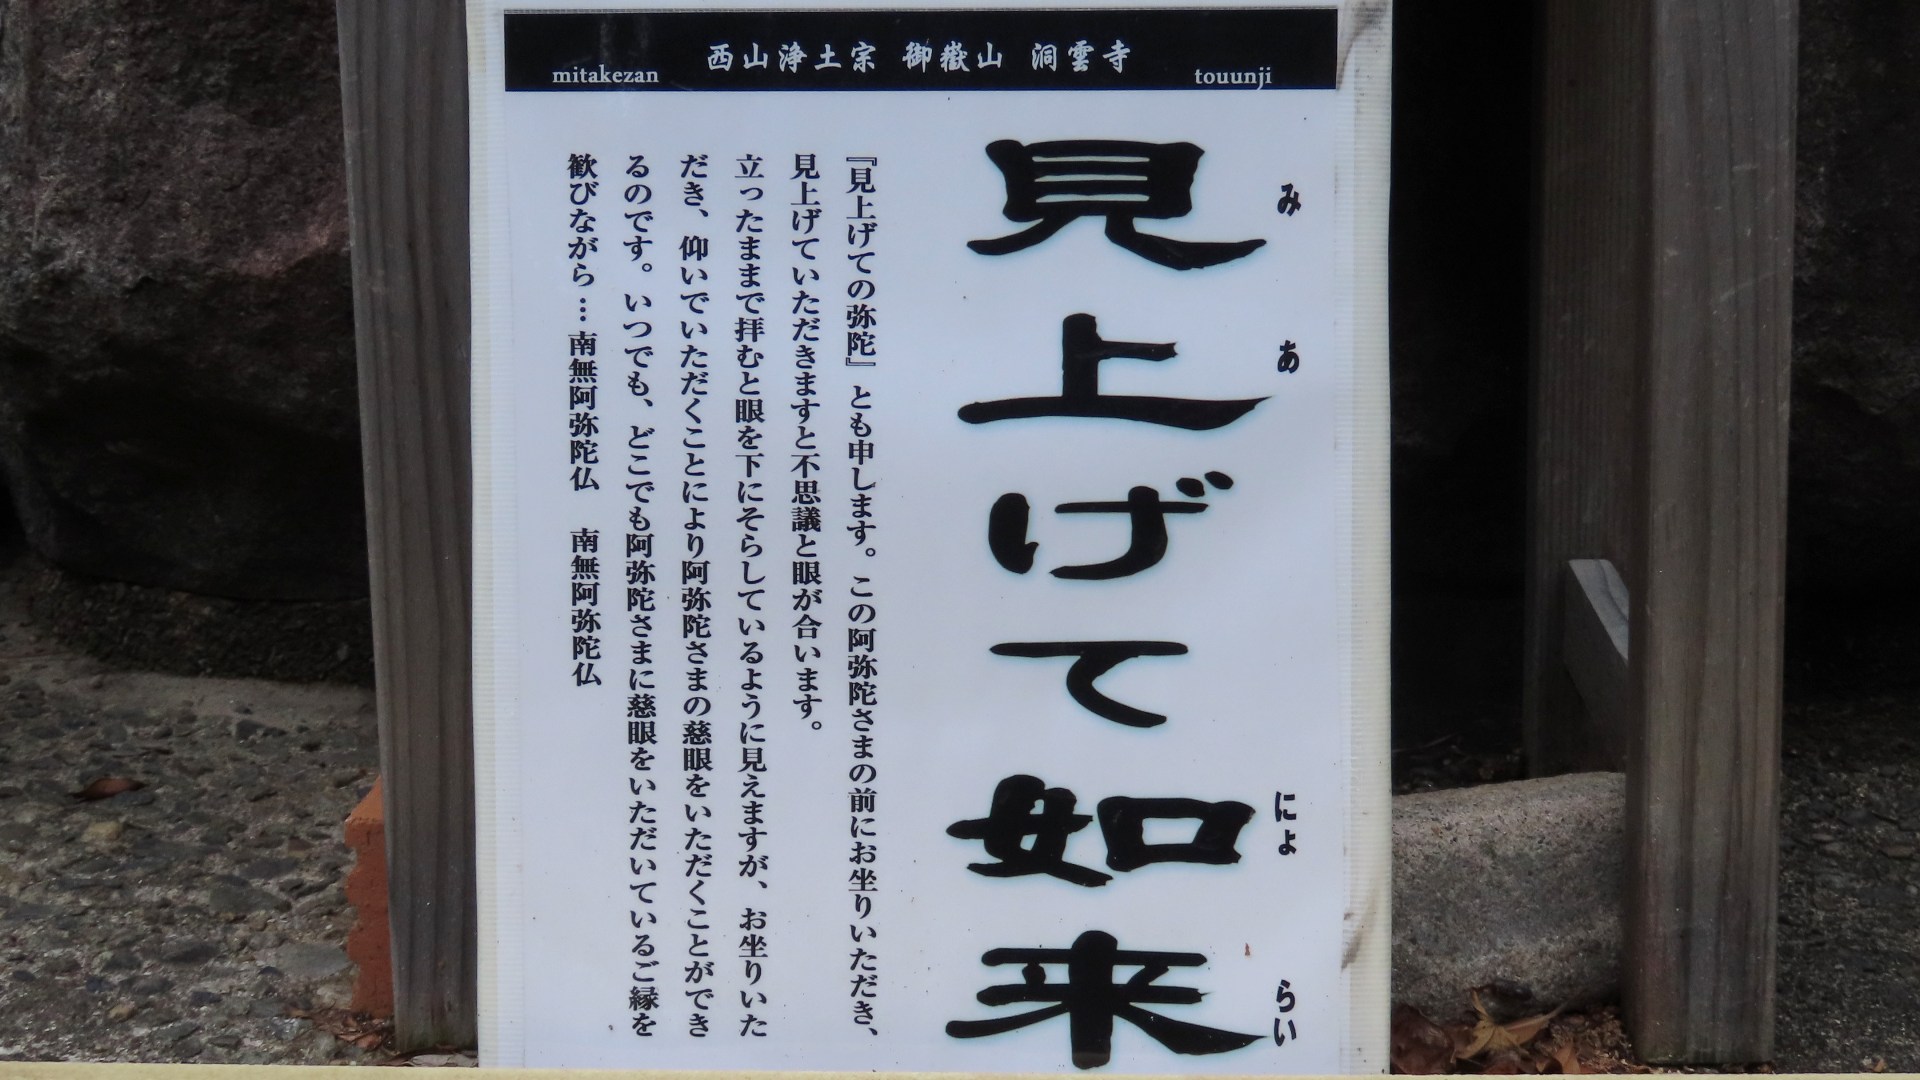 西山浄土宗 御嶽山 洞雲寺
mitakezan
touunji
見上げて如来
み あ にょ らい
『見上げての弥陀』とも申します。この阿弥陀さまの前にお坐りいただき、
見上げていただきますと不思議と眼が合います。
立ったままで拝むと眼を下にそらしているように見えますが、お坐りいた
だき、仰いでいただくことにより阿弥陀さまの慈眼をいただくことができ
るのです。いつでも、どこでも阿弥陀さまに慈眼をいただいているご縁を
歓びながら…南無阿弥陀仏 南無阿弥陀仏